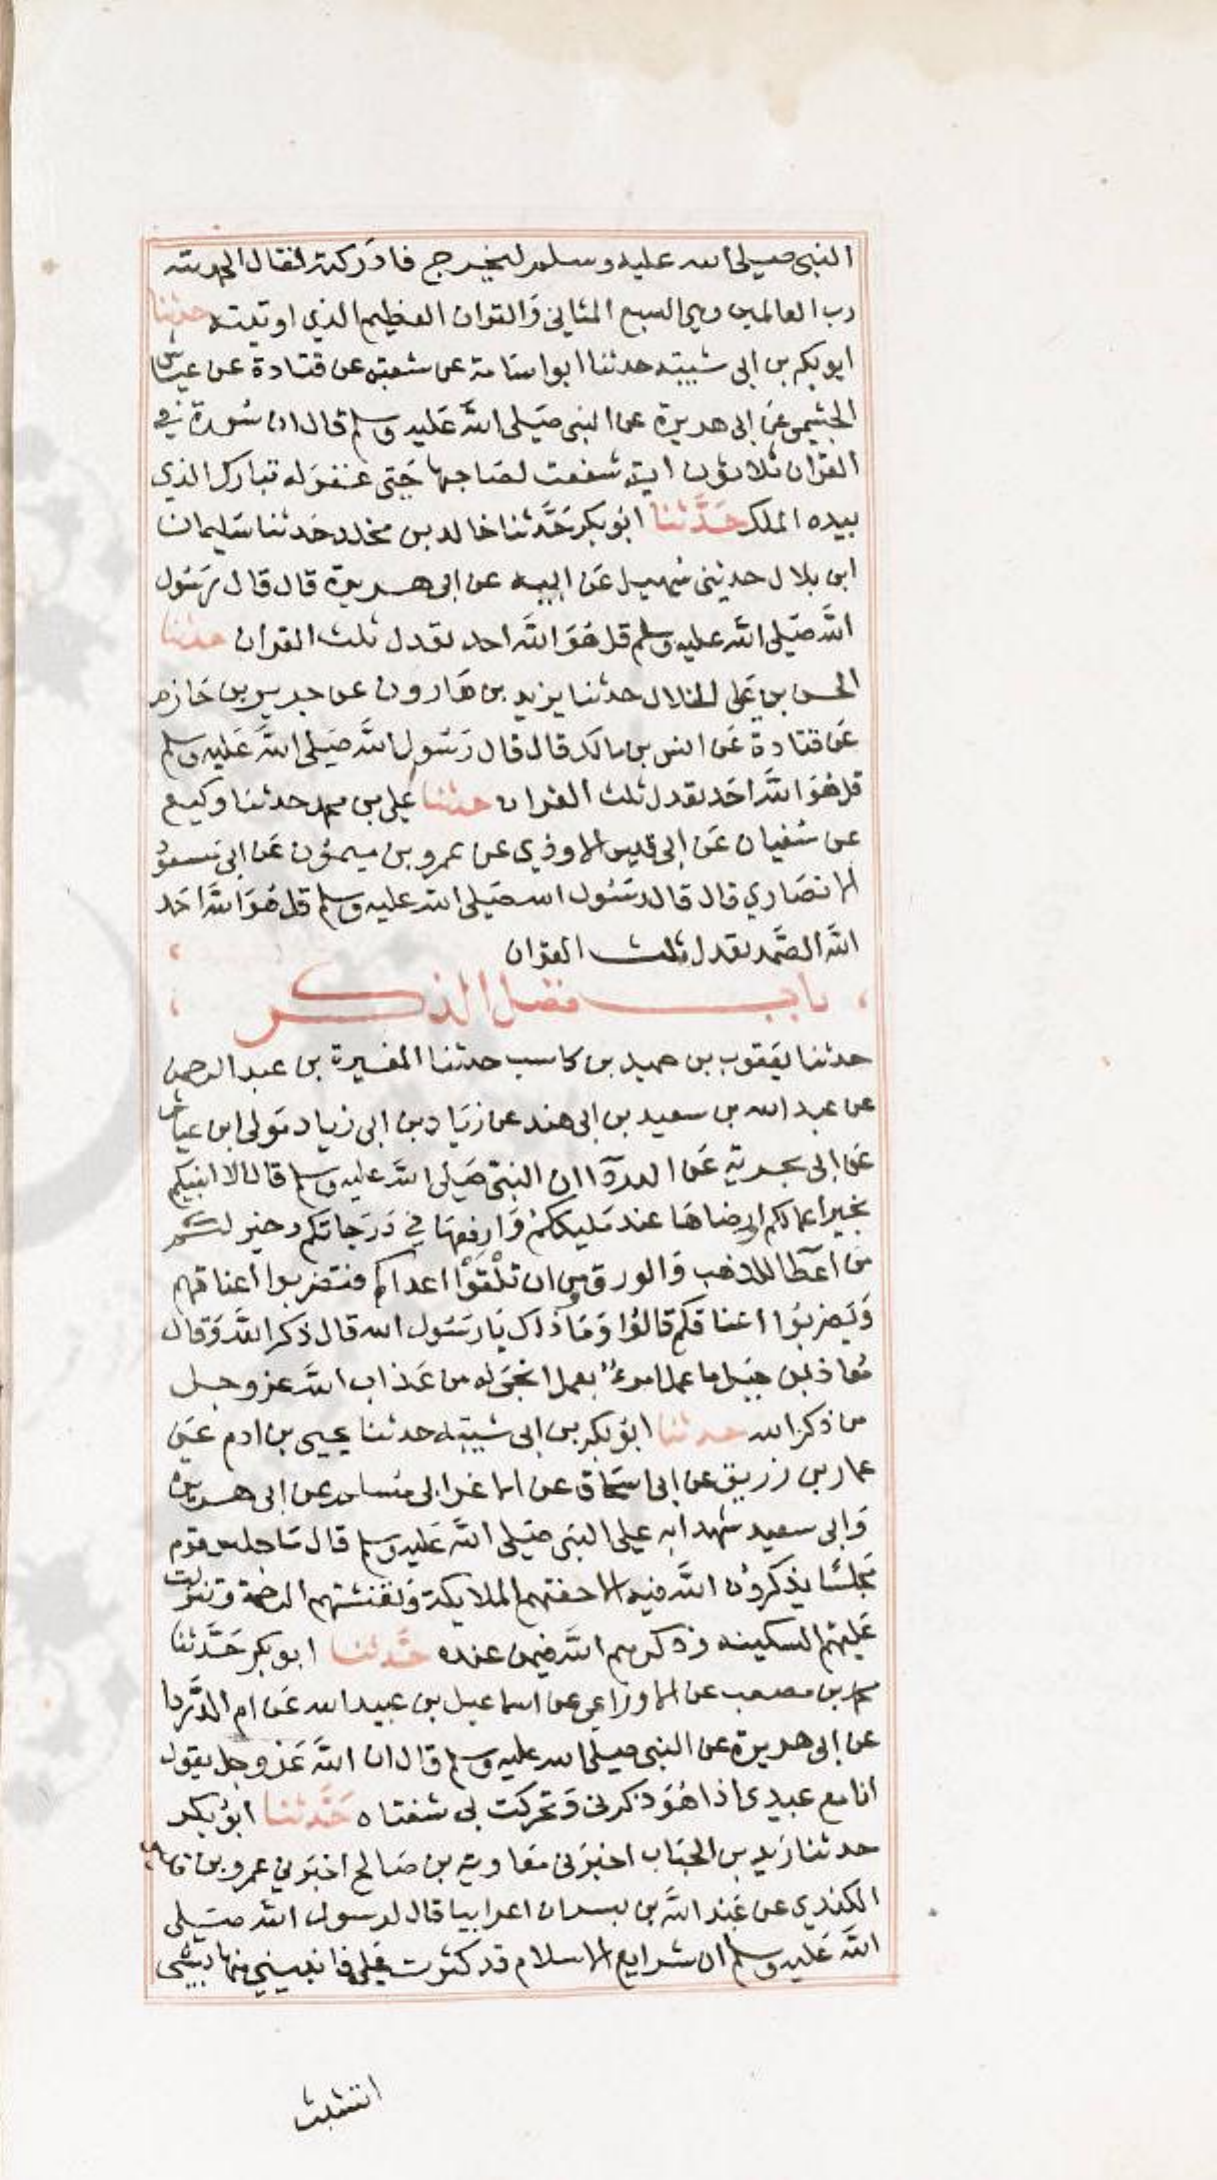 النبي صلى الله عليه وسلم ليخرج فادركته لفقال الحمد لله
رب العالمين وهي السبع المثاني وَالقران العظيم الذي اوتيته حدثنا
ابو بكر بن ابى شيبته حدثنا ابو اسَامة عن شعبته عن قتادة عن عباس
الجشمي عَن ابى هريرة عن النبي صَلى اللهَّ عَليه وسلم قال ان سُورة في
القرَان ثلاثون ايته شفعت لصَاحبها حَتى غفرَ له تبارك الذي
بيده الملك حَدَّثنا ابوُ بكر حَدَّثنا خالد بن مخلد حَدثنا سَليمان
ابن بلال حدثني سُهيل عَن ابيه عن ابى هريرة قال قال رسَول
اللهَّ صَلى اللهَّ عليه وسلم قل هُوَ اللهَّ احد تعدل ثلث القران حدثنا
الحسن بن عَلى الخلال حدثنا يزيد بن هَارون عن جرير بن حَازم
عَن قتادة عَن انس بن مالك قال قال رَسُول اللهَّ صَلى اللهَّ عَليه وسلم
قل هُوَ اللهَّ احَد تعدل ثلث القران حدثنا علي بن محمد حدثنا وكيع
عن سُفيان عَن ابى قيس الاوذي عن عمرو بن ميمُون عَن ابى مسعوُ
الانصَاري قال قال رسَوُل الله صَلى اللهَّ عليه وسلم قل هُوَ اللهَّ احَد
اللهَّ الصَّمد تعدل ثلث القرَان
باب فضل الذكر
حدثنا يعَقوب بن حميد بن كاسب حدثنا المغيرة بن عبد الرحمن
عن عبد الله بن سعيد بن ابى هند عن زيَاد بن ابى زياد مَولى ابن عياش
عَن ابى بحرية عَن الدردآ ان النبىّ صَلى اللهَّ عليه وسلم قال الا انبيكم
بخير اعمالكم وارضاهَا عند مَليككمُ وَارفعهَا في دَرَجاتكم وخير لكم
من اعَطا الذهب وَالورق ومن ان تلْقَوْا اعداكم فتضربوا اعناقهم
وَيَضربُوا اعناقكم قالوُا وَمَا ذاك يَا رسَوُل الله قال ذكر اللهَّ وَقال
مُعاذ بن جَبل ما عمل امرءُ بعمل انجَى له من عَذاب اللهَّ عز وجل
من ذكر الله حدثنا ابوُ بكر بن ابى شيبَته حدثنا يحيى بن ادم عَن
عمار بن زريق عن ابى اسحَاق عن الاغر ابى مُسلم عن ابى هريرة
وَابى سعيد شهدا به على النبى صَلى اللهَّ عَليه وسلم قال مَا جلس قوم
مَجلسًا يذكروُن اللهَّ فيه الا حفتهم الملايكة وَتغشتهم الرحمة وَتنزلت
عَليهم السكينه وَذكرهم اللهَّ فيمن عنده حَدَّثنا ابو بكر حَدَّثنا
محمد بن مصعب عن الاوزاعي عن اسماعيل بن عبيد الله عَن ام الدَّردا
عن ابى هريرة عن النبى صلى الله عليه وسلم قال ان اللهَّ عَز وجل يقول
انا مع عبدي اذا هُوَ ذكرني وَتحركت بى شفتاه حَدَّثنا ابوُ بكر
حدثنا زيد بن الحبَاب اخبرَنى معَاوية بن صَالح اخبرَني عمرو بن قيس
الكندي عن عَبد اللهَّ بن بسر ان اعرابيا قال لرسول اللهَّ صَلى
اللهَّ عَليه وسلم ان شرايع الاسلام قد كثرت عَلي فانبيني منها بشى
اتشبث